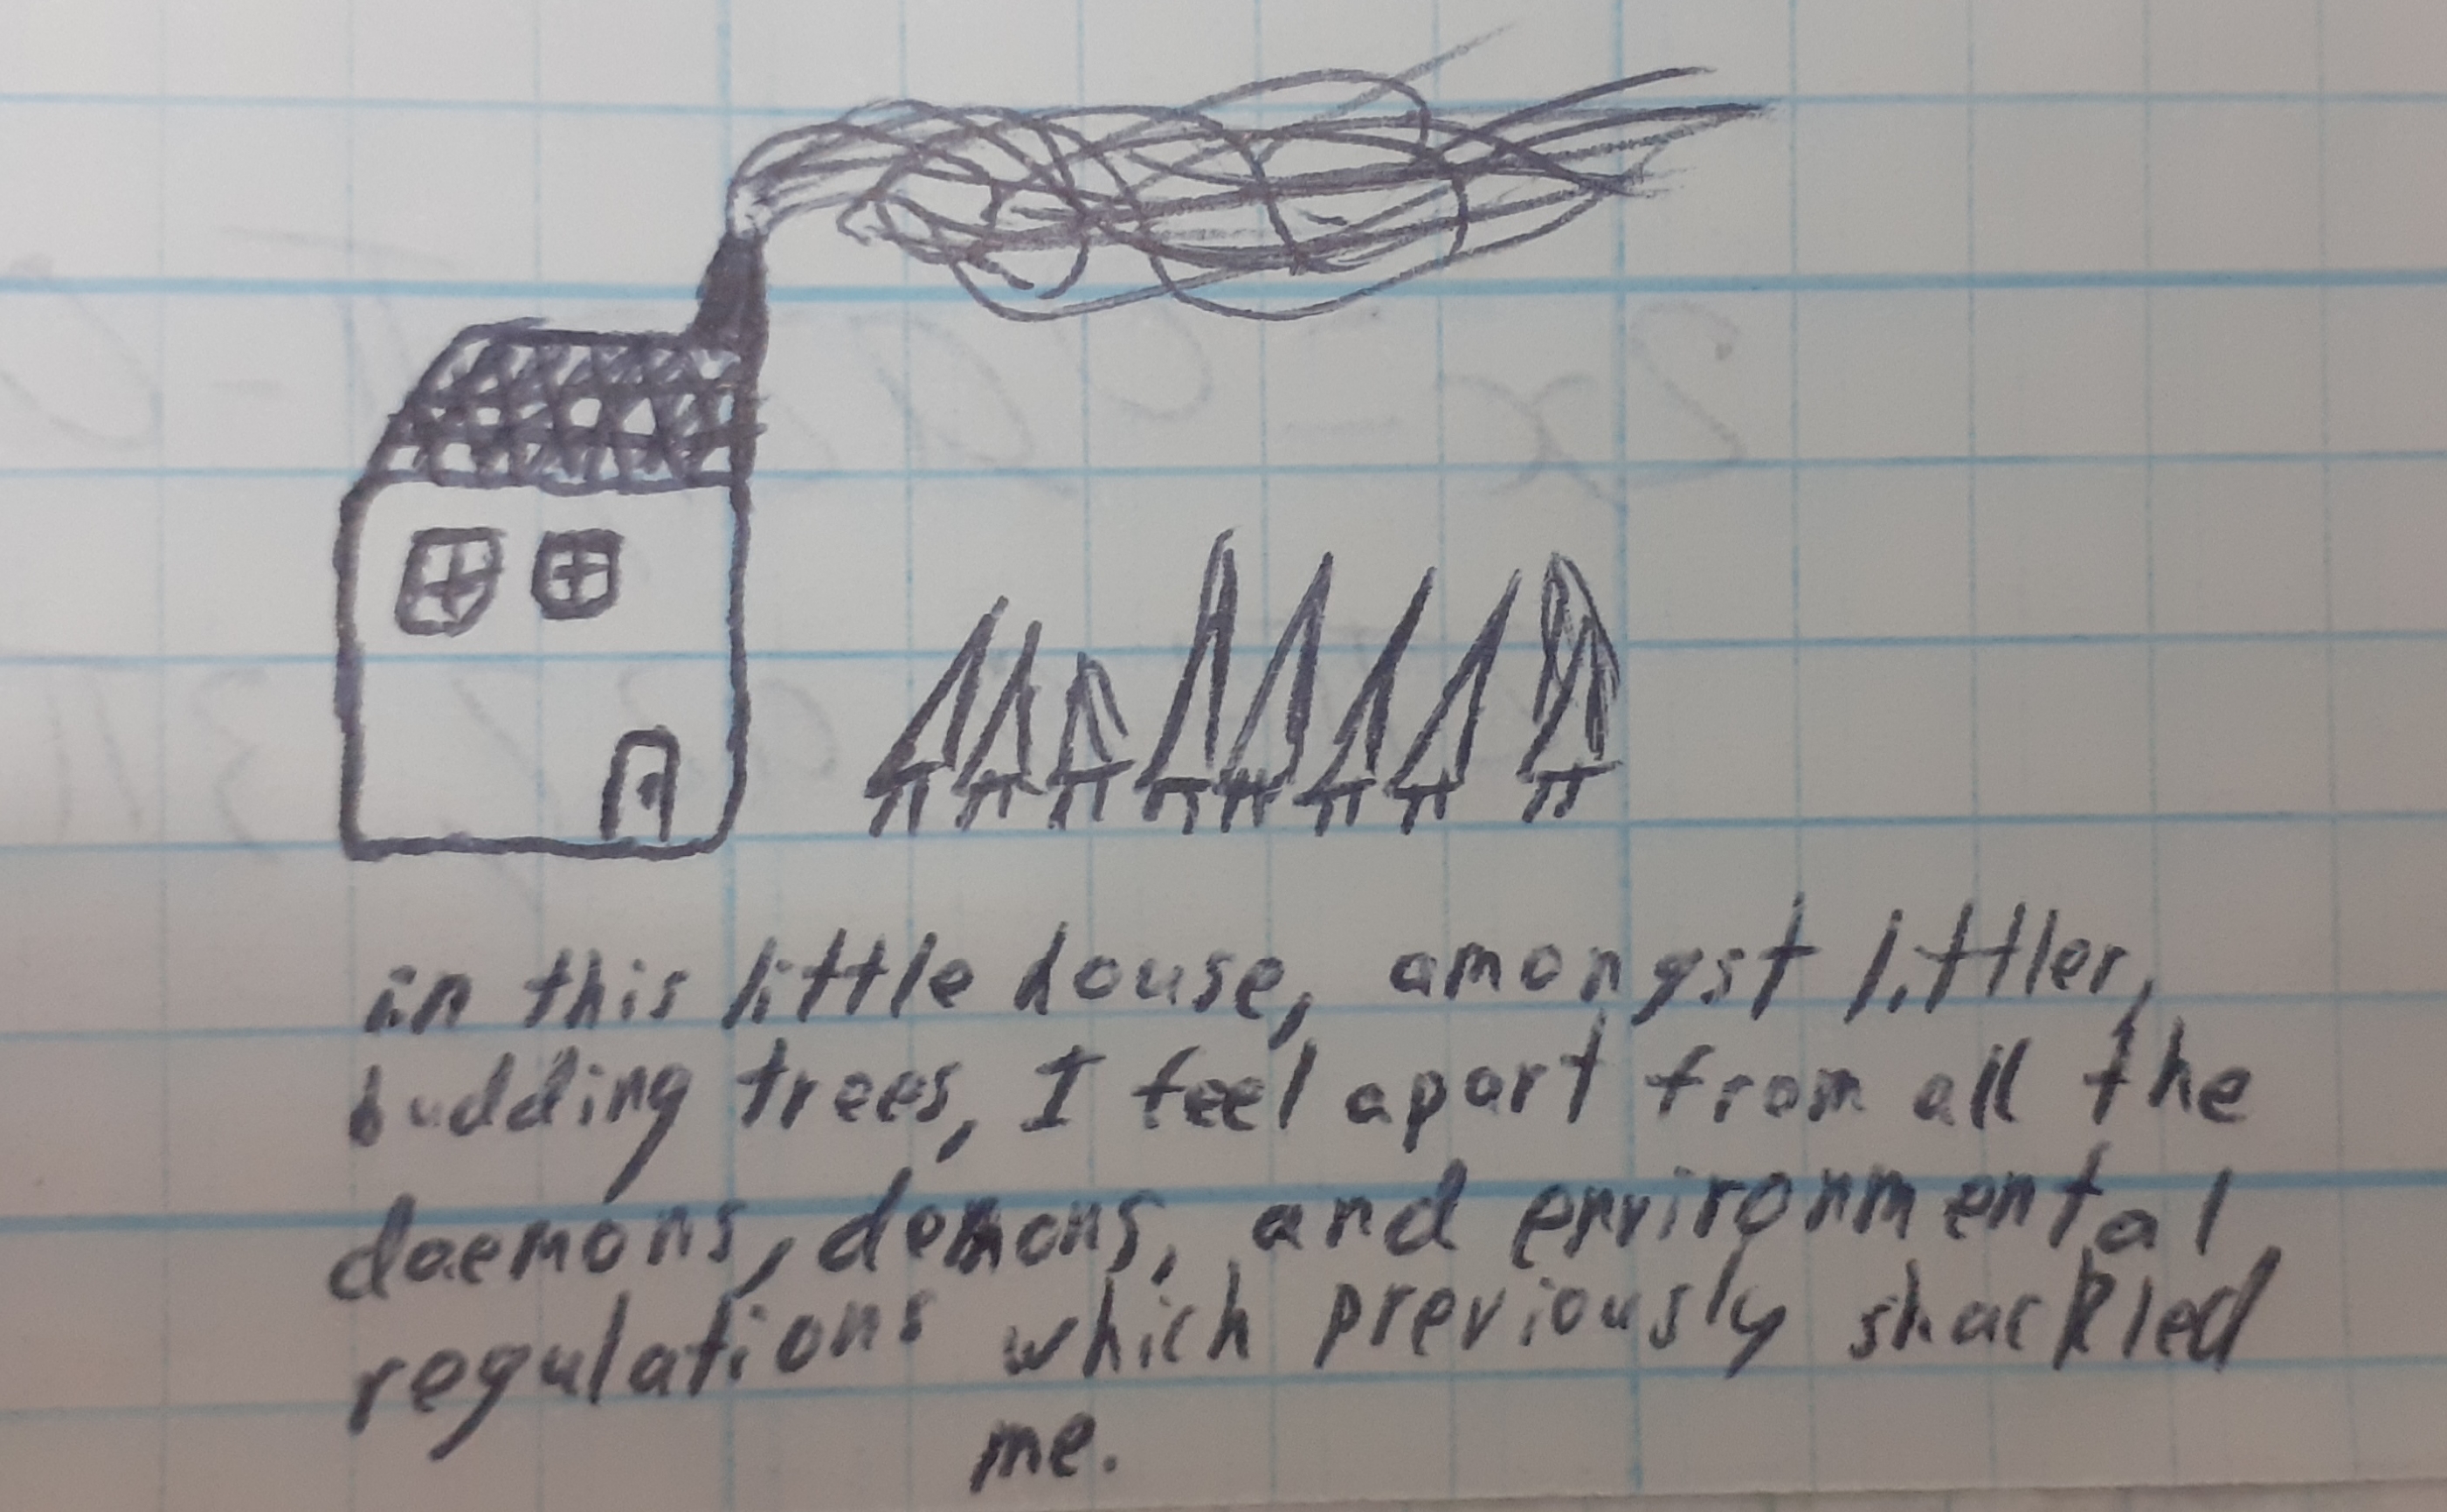 in this little house, amongst littler,
budding trees, I feel apart from all the
daemons, demons, and environmental
regulations which previously shackled
me.